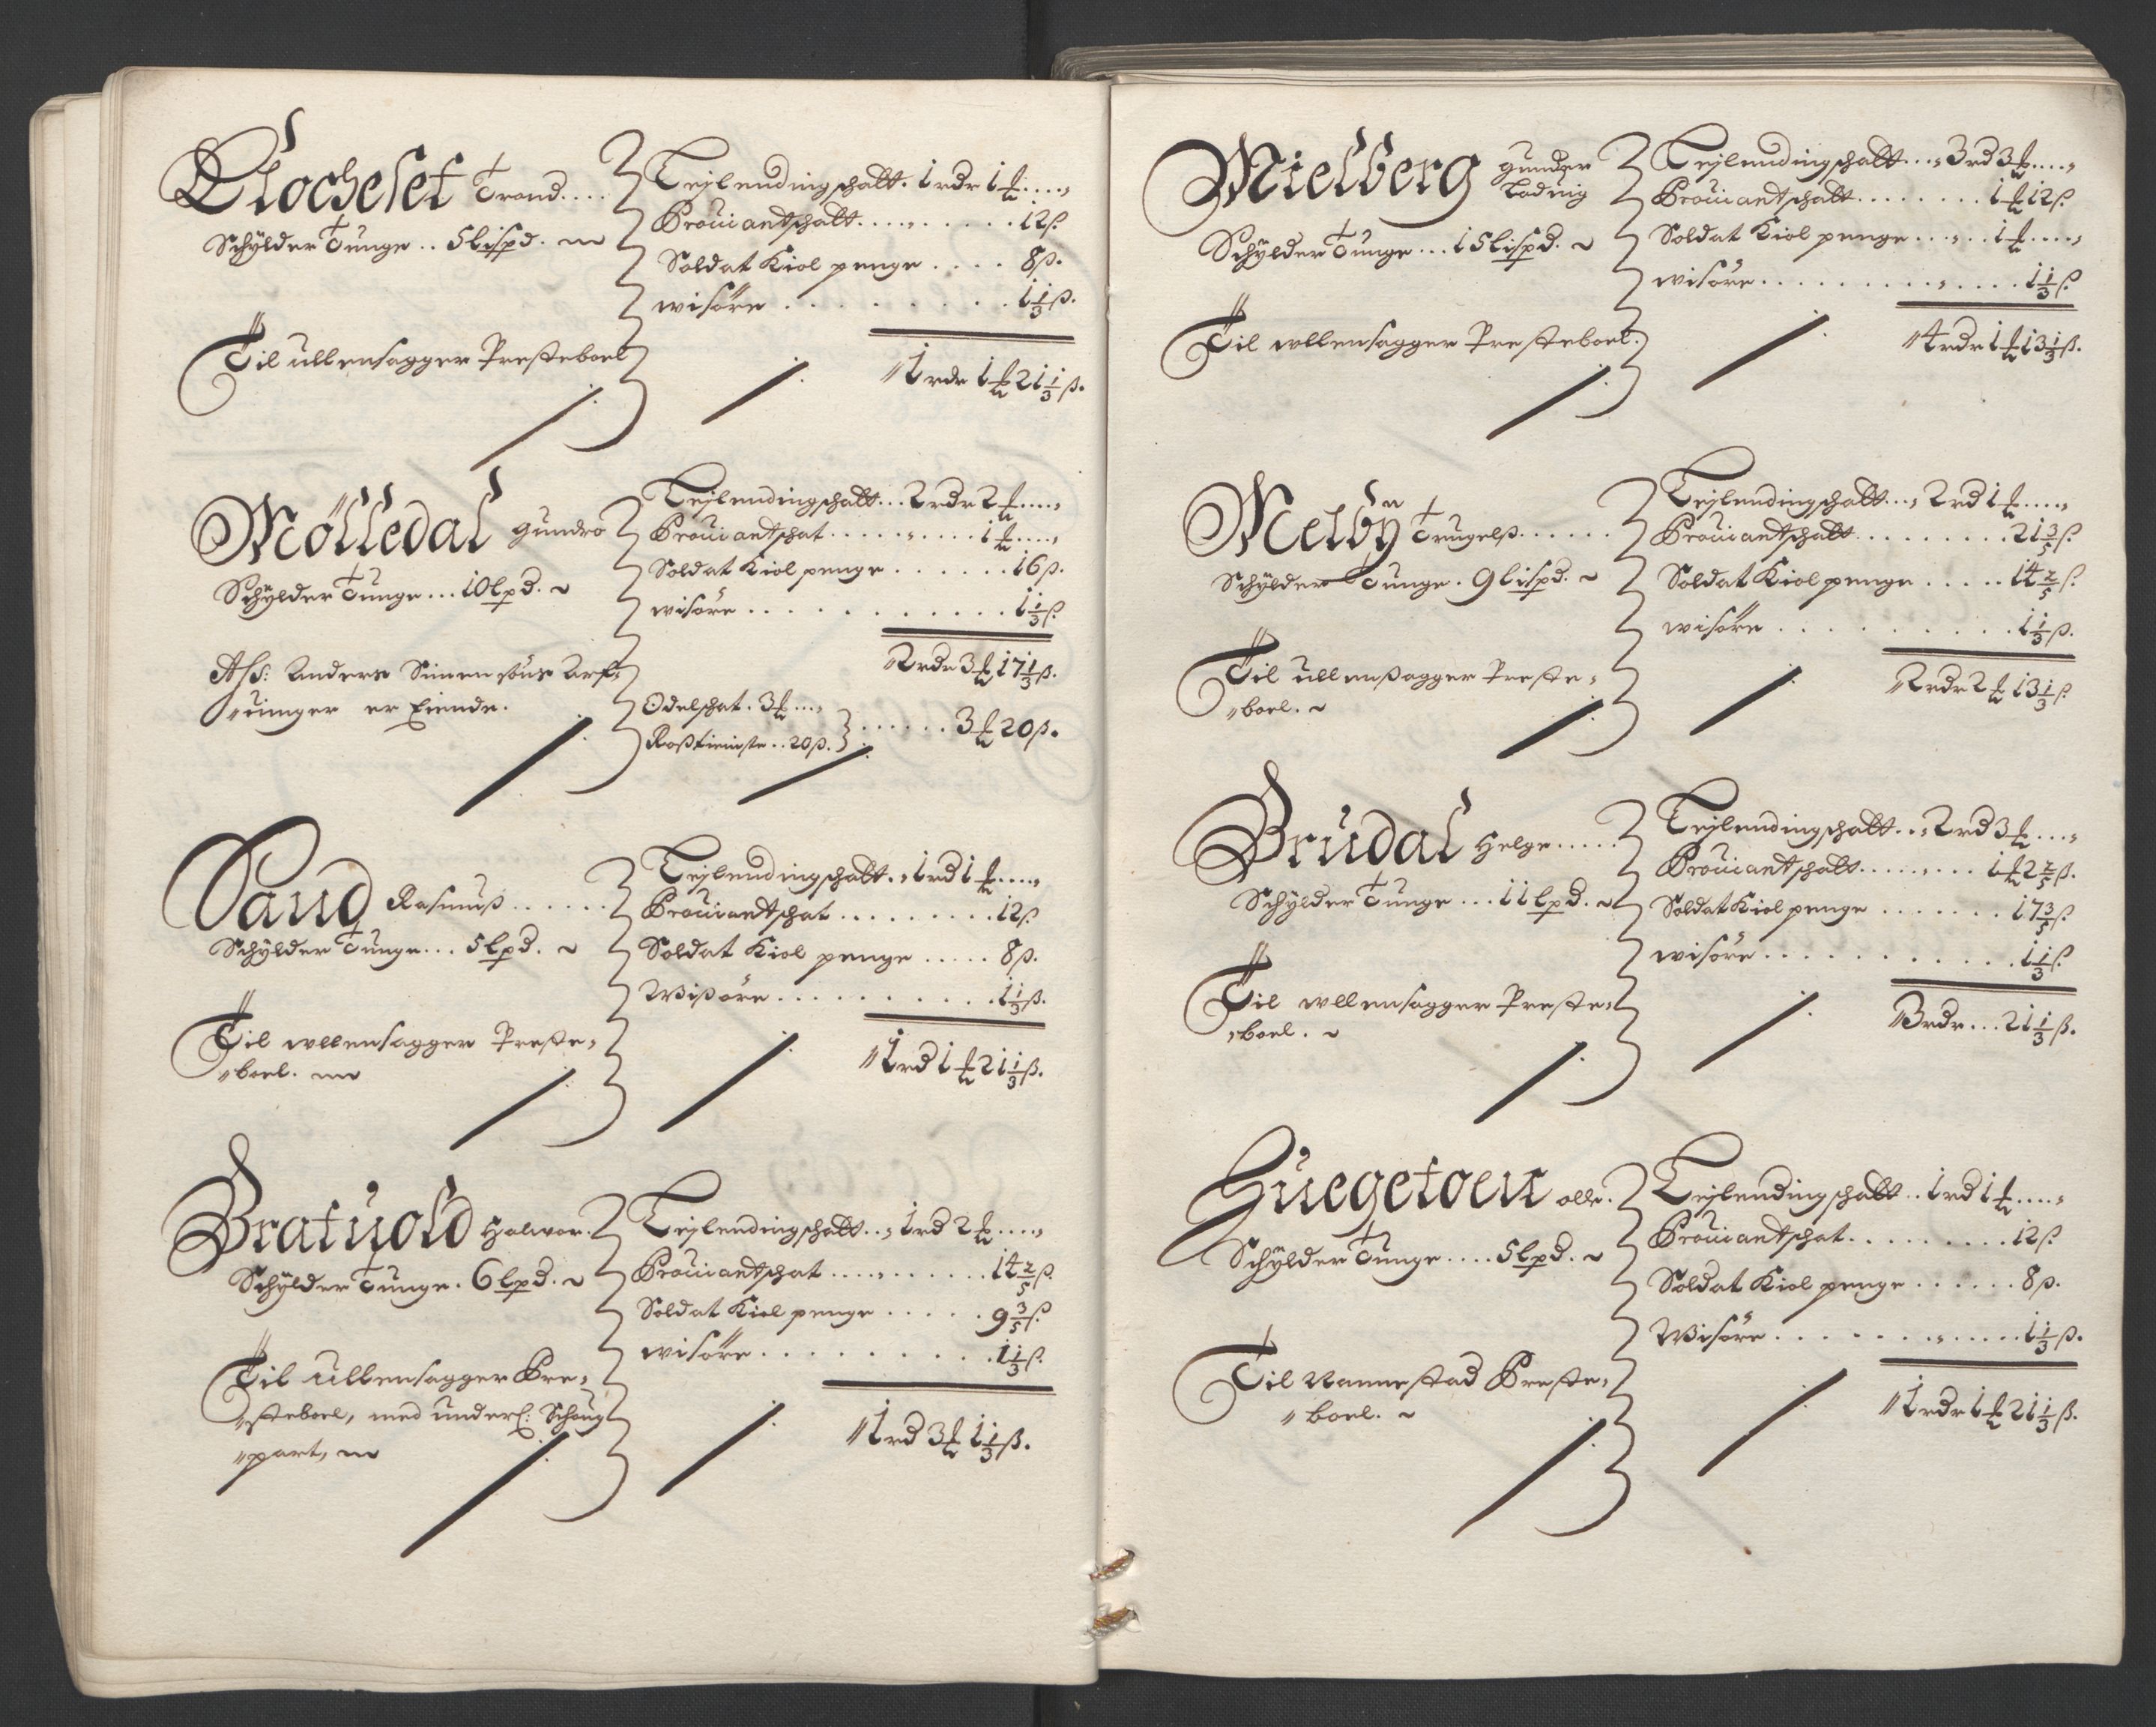 Clocheset Trond....
Schÿlder Tunge.. 5 lispd.
Til ullensagger Presteboel
Leylendingschatt. 1 rdr 1 ort....
Prouiantschatt........ 12 ß.
Soldat Kiol penge.... 8 ß.
wisöre......... 1 1/3 ß.
1 rdr 1 ort 21 1/3 ß.
Mölledal gundro
Schÿlder Tunge... 10 lpd.
Ahs: Anders Simensöns Arf-
uinger er Eiende.
Leylendingschatt... 2 rdr 2 ort....
Prouiantschat......... 1 ort....
Soldat Kiol penge...... 16 ß.
wisöre............ 1 1/3 ß.
2 rdr 3 ort 17 1/3 ß.
Odelschat. 3 ort....
Roßtieniste.. 20 ß. ...... 3 ort 20 ß.
Sand Rasmuß......
Schÿlder Tunge... 5 lpd.
Til ullensagger Preste-
boel.
Leylendingschatt. 1 rd 1 ort....
Prouiantschat......... 12 ß
Soldat Kiol penge..... 8 ß.
Wißöre.......... 1 1/3 ß.
1 rd 1 ort 21 1/3 ß.
Bratuold Halvor.
Schÿlder Tunge. 6 lpd.
Til ullensagger Pre-
steboel, med underl: Schoug
part,
Leylendingschatt.. 1 rd 2 ort....
Prouiantschat.......... 14 2/5 ß.
Soldat Kiol penge..... 9 3/5 ß.
wisöre.......... 1 1/3 ß.
1 rd 3 ort 1 1/3 ß.
Mielberg gunder
Lodvig
Schÿlder Tunge... 15 lispd.
Til ullensagger Presteboel.
Leylendingschatt... 3 rd 3 ort....
Prouiantschatt........ 1 ort 12 ß.
Soldat Kiol penge...... 1 ort....
wisöre............ 1 1/3 ß.
4 rdr 1 ort 13 1/3 ß.
Melbÿ Trugelß......
Schÿlder Tunge. 9 lispd.
Til ullensßagger Preste-
boel.
Leylendingschatt... 2 rd 1 ort....
Prouiantschatt......... 21 3/5 ß.
Soldat Kiol penge..... 14 2/5 ß.
wisöre.......... 1 1/3 ß.
2 rdr 2 ort 13 1/3 ß
Brudal Helge.....
Schÿlder Tunge... 11 lpd.
Til ullensagger Preste-
boel.
Leylendingschatt... 2 rd 3 ort....
Prouiantschatt........ 1 ort 2 2/5 ß.
Soldat Kiol penge....... 17 3/5 ß
wisöre............ 1 1/3 ß
3 rdr... 21 1/3 ß.
Huegetoen olle.
Schÿlder Tunge.... 5 lpd.
Til Nannestad Preste-
boel.
Leylendingschatt.. 1 rd 1 ort....
Prouiantschat......... 12 ß.
Soldat Kiol penge...... 8 ß.
Wisöre............ 1 1/3 ß.
1 rdr 1 ort 21 1/3 ß.